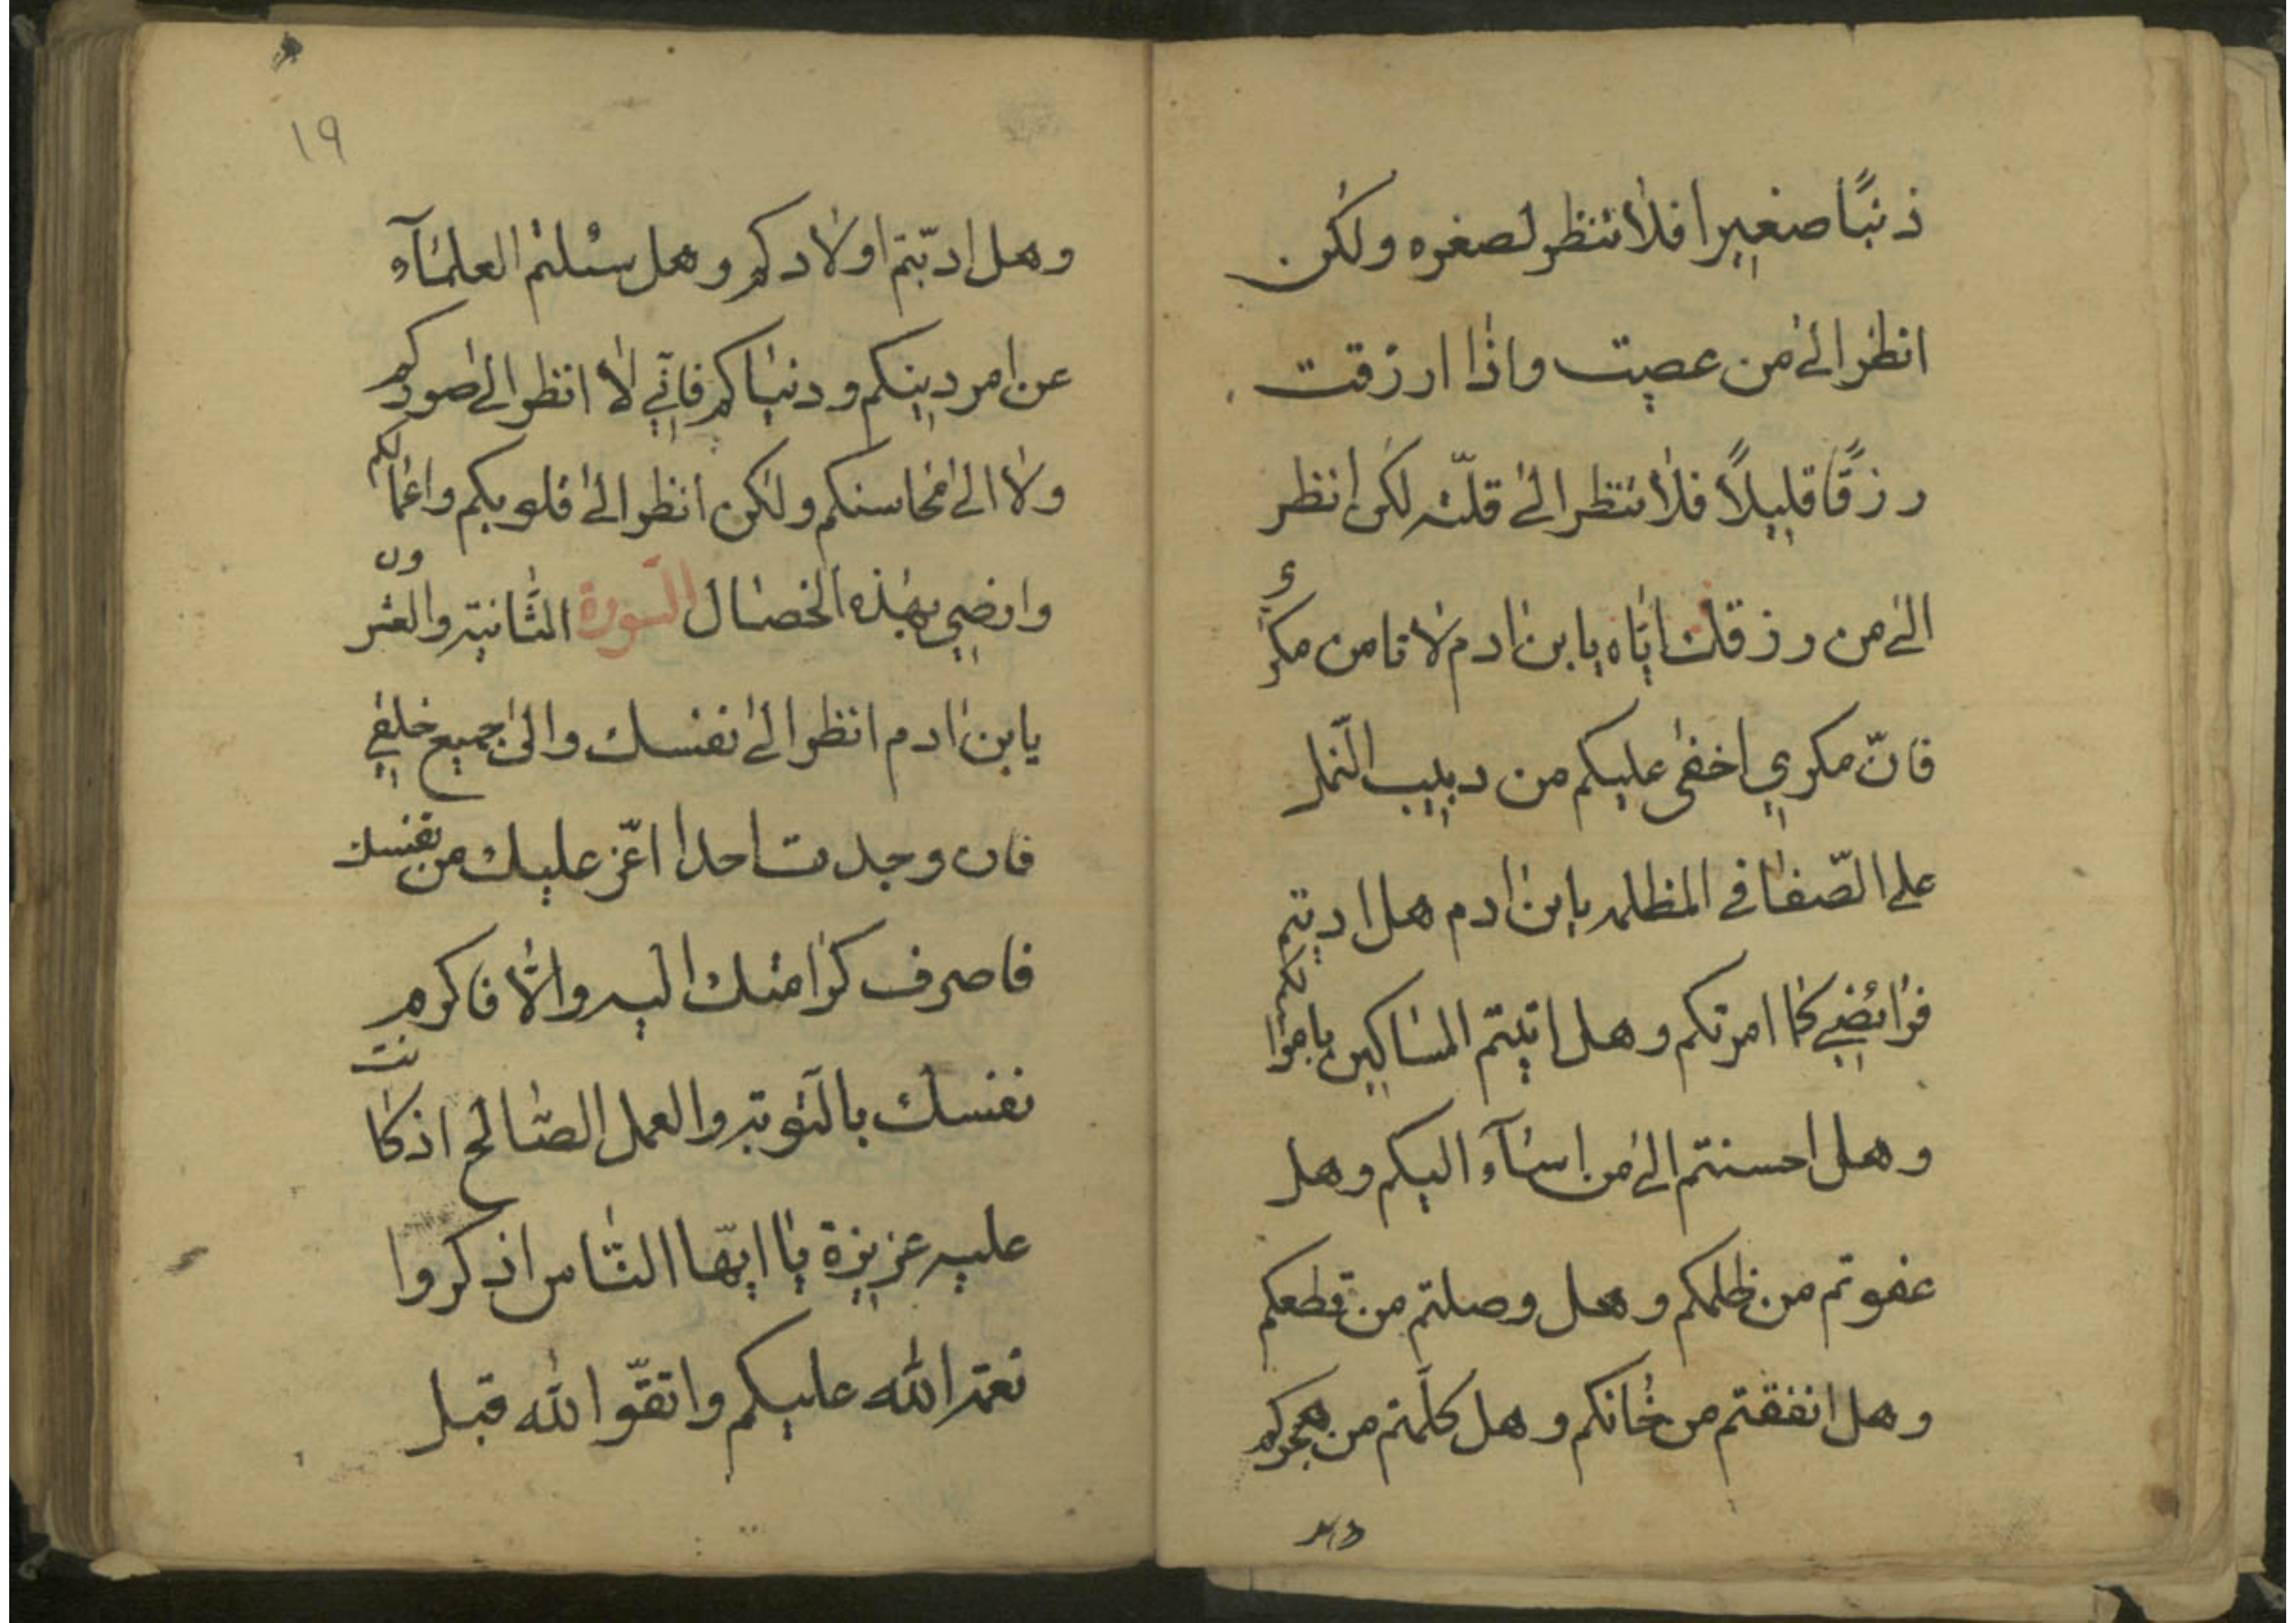 ذنبًا صغيرا فلا تنظر لصغره ولكن
انظر الى من عصيت واذا ارزقت
رزقًا قليلاً فلا تنظر الى قلّته لكن انظر
الى من رزقك ايّاه يابن ادم لا تامن مكري
فانّ مكري اخفى عليكم من دبيب النّمل
على الصّفا في المظلمه يابن ادم هل اديتم
فرائضي كما امرتكم وهل اتيتم المساكين باموالكم
وهل احسنتم الى من اسآء اليكم وهل
عفوتم من ظلمكم وهل وصلتم من قطعكم
وهل انفقتم من خانكم وهل كلّمتم من هجركم
وهل
١٩
وهل ادّبتم اولادكم وهل سئلتم العلمآء
عن امر دينكم ودنياكم فانّي لا انظر الى صوركم
ولا الى محاسنكم ولكن انظر الى قلوبكم واعمالكم
وارضي بهذه الخصال السورة الثّانية والعشرون
يابن ادم انظر الى نفسك والى جميع خلقي
فان وجدت احدا اعّز عليك من نفسك
فاصرف كرامتك اليه والّا فاكرم
نفسك بالتّوبة والعمل الصّالح اذ كانت
عليه عزيزة يا ايّها النّاس اذكروا
نعمة الله عليكم واتقّوا الله قبل